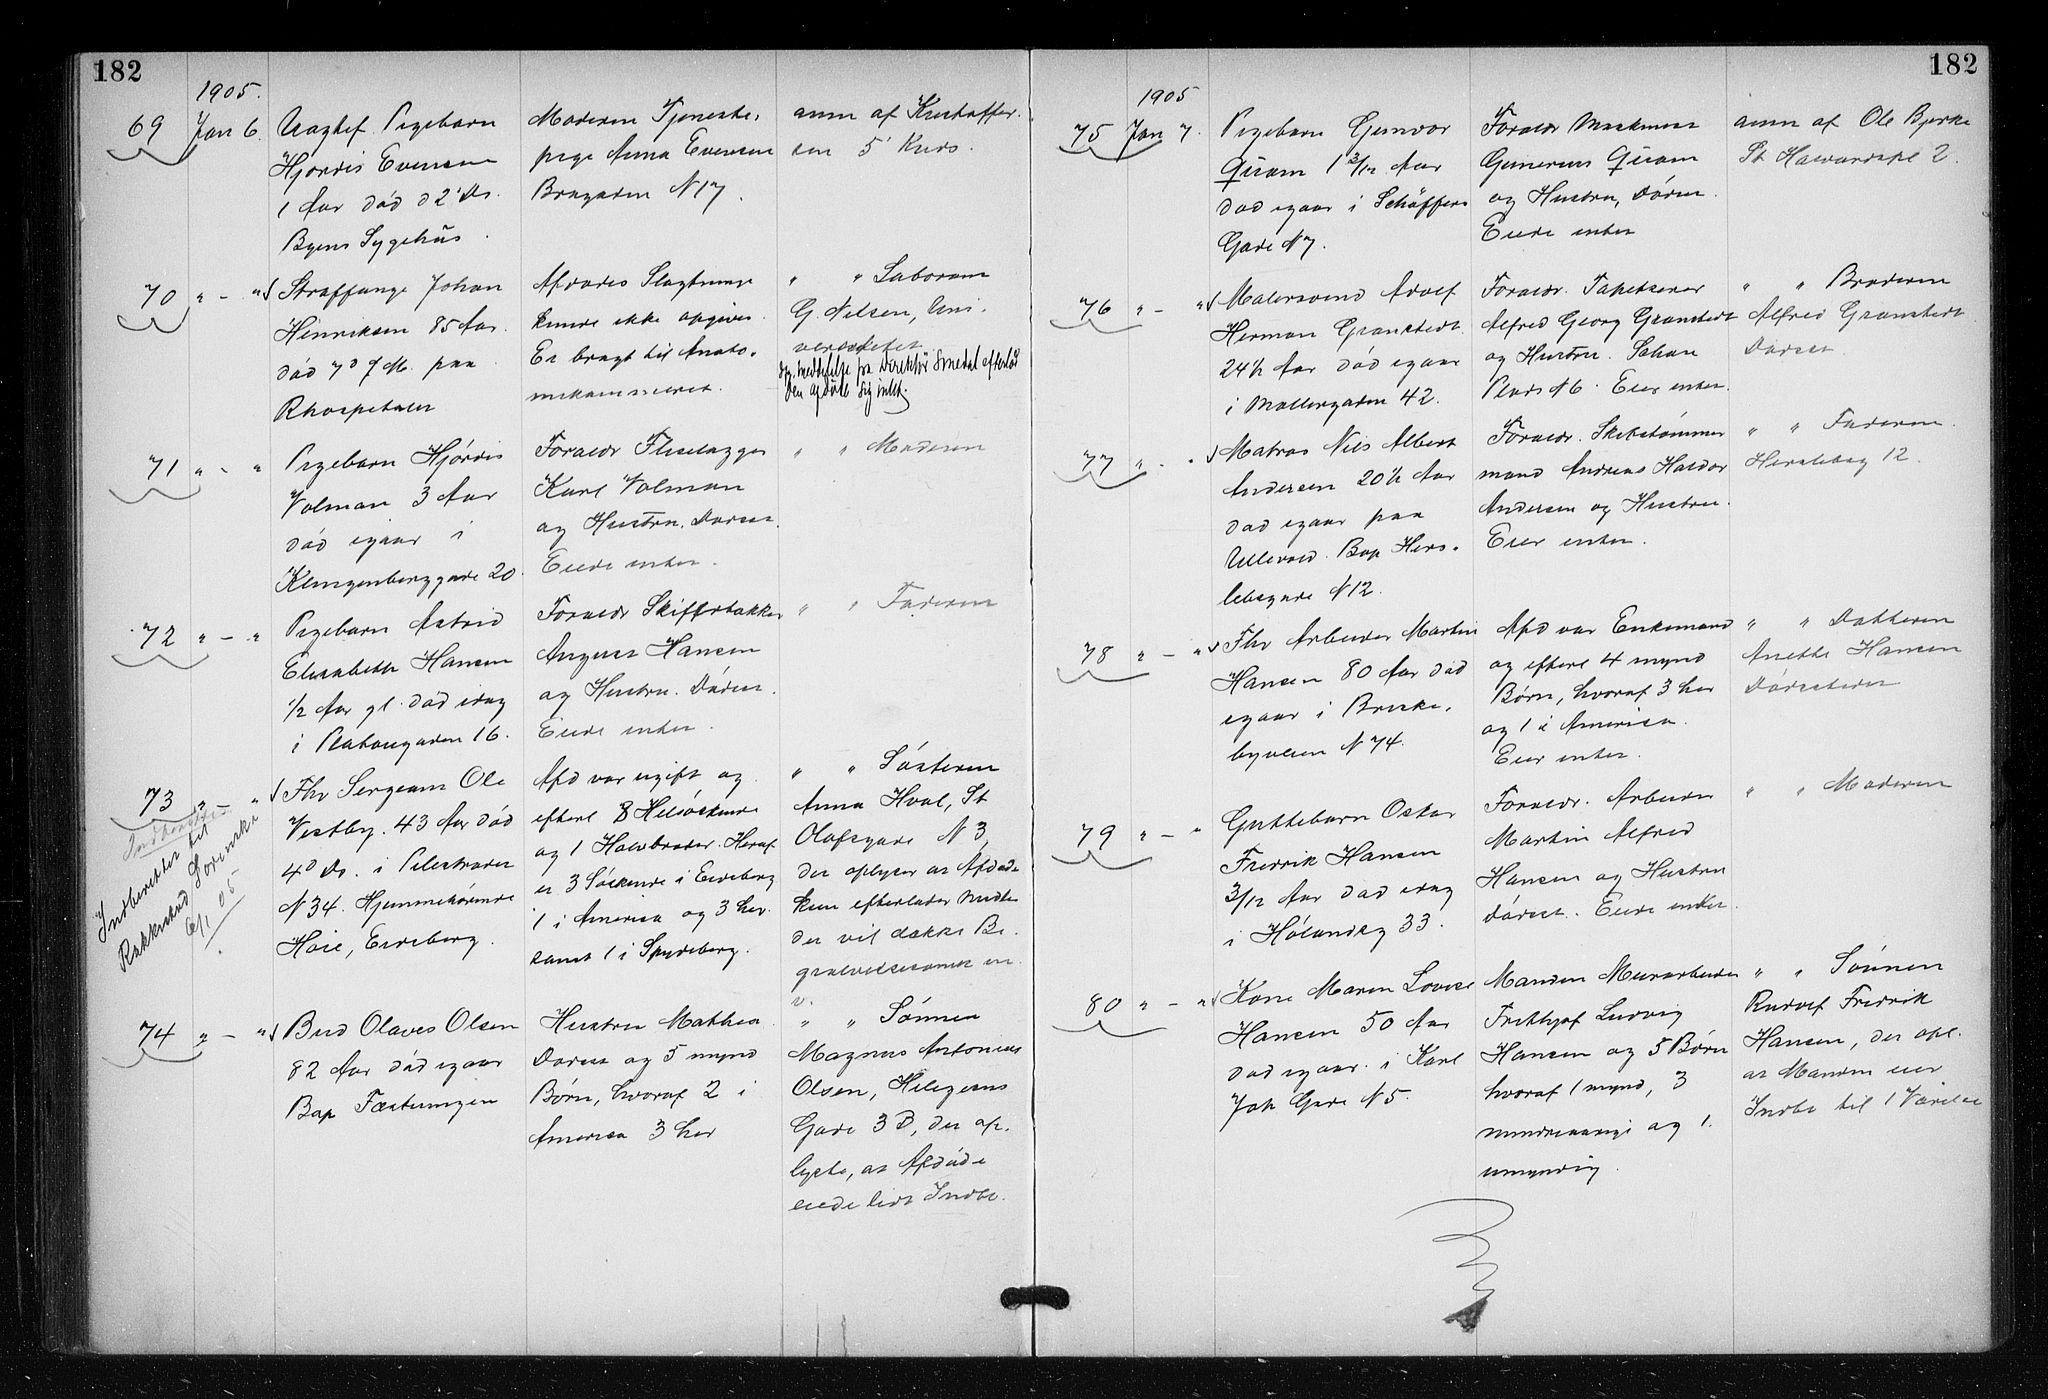 182
1905.
69 Jan 6.
Uægtef. Pigebarn
Hjørdis Evensen
1 Aar død d 2' Ds.
Byens Sygehus.
Moderen Tjeneste-
pige Anna Evensen
Brugaden N 17.
anm af Kristoffer-
sen 5' Kreds.
70 " - "
Straffange Johan
Henriksen 85 Aar.
død 7d f M. paa
Rhospitalet
Afdødes Slægtninge
kunde ikke opgives.
Er bragt til Anato-
mikammeret.
" " Laborant
G. Nilsen, Uni-
versitetet
meddelelse fra Direktør Smedal efterlod
den afdøde sig intet.
71 " - "
Pigebarn Hjørdis
Volman 3 Aar
død igaar i
Klingenberggade 20.
Forældr Fliselægger
Karl Volman
og Hustru. Darset.
Eiede intet.
" " Moderen
72 " - "
Pigebarn Astrid
Elisabeth Hansen
1/2 Aar gl. død idag
i Platougaden 16.
Forældr Skiffertækker
August Hansen
og Hustru. Dórset.
Eiede intet.
" " Faderen
73 " - "
Indberettet
Indberettet til
Rakkestad Sorenskr
6/1 05.
Fhv Sergeant Ole
Vestby. 43 Aar død
4d Ds. i Pilestrædet
N 34. Hjemmehørende
Høie, Eidsberg.
Afd var ugift og
efterl 8 Helsøskende
og 1 Halvbroder. Heraf
er 3 Søskende i Eidsberg
1 i America og 3 her
samt 1 i Spydeberg.
" " Søsteren
Anna Hval, St
Olafsgade N 3
der oplyser at Afdøde
kun efterlader Midler
der vil dække Be-
gravelsesomk
74 " - "
Bud Olaves Olsen
82 Aar død igaar
Bop Fæstningen
Hustru Mathea
Dorset og 5 mynd
Børn, hvoraf 2 i
America 3 her
" " Sønnen
Magnus Antonius
Olsen, Helgesens
Gade 3 B, der op-
lyste, at Afdøde
eiede lidt Indbo.
182
1905
75 Jan 7.
Pigebarn Gunvor
Quam 1 3/12 Aar
død igaar i Schøffers
Gade N 7.
Forældr Maskinist
Gunerius Quam
og Hustru, Dórset.
Eiede intet
anm af Ole Bjerke
St Halvardspl 2.
76 " - "
Malersvend Adolf
Herman Granstedt.
24 1/2 Aar død igaar
i Møllergaden 42.
Forældr. Tapetserer
Alfred Georg Granstedt
og Hustru. Schous
Plads N 6. Eier intet.
" " Broderen
Alfred Granstedt
Dórset.
77 " - "
Matros Nils Albert
Andersen 20 1/2 Aar
død igaar paa
Ullevold. Bop Hers-
lebsgade N 12.
Forældr. Skibstømmer-
mand Andreas Haldor
Andersen og Hustru.
Eier intet.
" " Faderen.
Herslebsg 12.
78 " - "
Fhv Arbeider Martin
Hansen 80 Aar død
igaar i Briske-
byveien N 74.
Afd var Enkemand
og efterl 4 mynd
Børn, hvoraf 3 her
og 1 i America.
Eier intet.
" " Datteren
Anette Hansen
Dórsteder
79 " - "
Guttebarn Oskar
Fredrik Hansen
3/12 Aar død idag
i Hølandsg 33.
Forældr. Arbeider
Martin Alfred
Hansen og Hustru
dórset. Eiede intet.
" " Moderen
80 " - "
Kone Maren Lovise
Hansen 50 Aar
død igaar. i Karl
Joh Gade N 5.
Manden Murarbeider
Frithjof Ludvig
Hansen og 5 Børn
hvoraf 1 mynd, 3
mindreaarige og 1.
umyndig.
" " Sønnen
Rudolf Fredrik
Hansen, der opl.
at Manden eier
Indbo til 1 Værelse